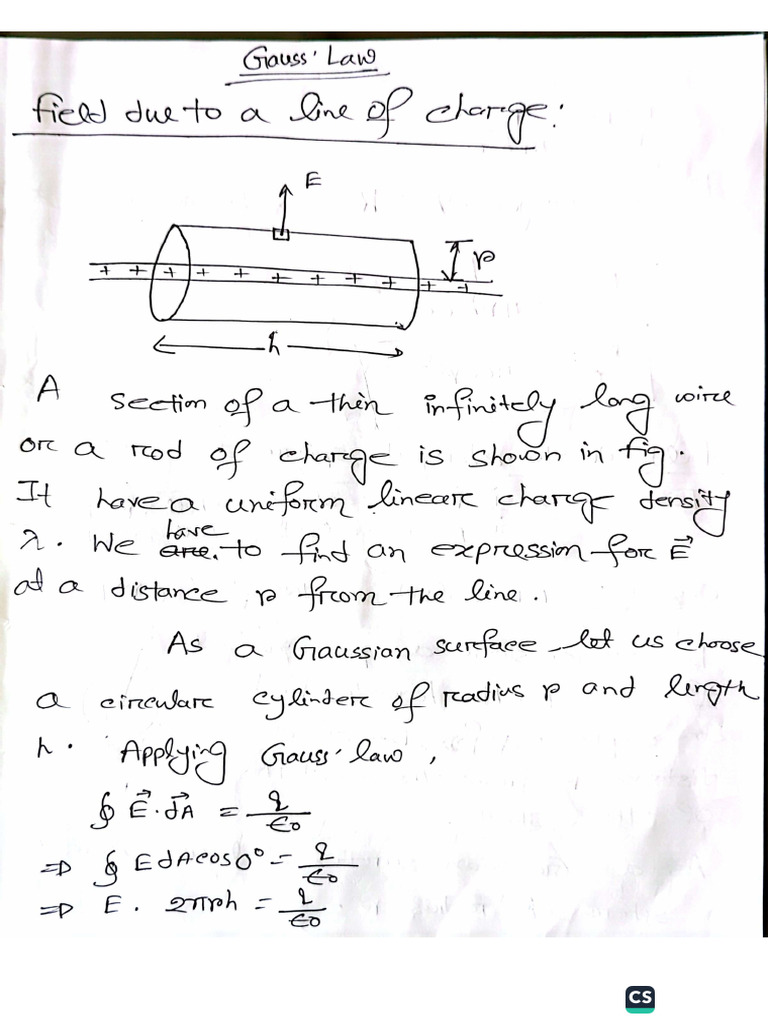 Gauss' Law
field due to a line of charge:
E
r
+ + + + + + + + + + +
h
A section of a thin infinitely long wire
or a rod of charge is shown in fig.
It have a uniform linear charge density
have
λ. We are. to find an expression for E⃗
at a distance r from the line.
As a Gaussian surface let us choose
a circular cylinder of radius r and length
h. Applying Gauss' law,
∮ E⃗.dA⃗ = q/ε0
⇒ ∮ E dA cos 0° = q/ε0
⇒ E. 2πrh = q/ε0
CS